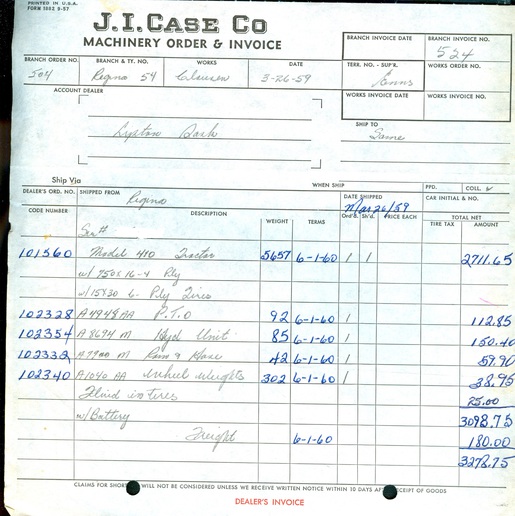 PRINTED IN U.S.A.
FORM 1882 5-57
J.I. CASE CO
MACHINERY ORDER & INVOICE
BRANCH INVOICE DATE BRANCH INVOICE NO.
524
BRANCH ORDER NO. BRANCH & TY. NO. WORKS DATE
504 Regina 54 Clausen 3-26-59
TERR. NO. - SUP'R. WORKS ORDER NO.
Enns
ACCOUNT DEALER
WORKS INVOICE DATE WORKS INVOICE NO.
SHIP TO
Same
Lipton Sask
Ship Via WHEN SHIP
DEALER'S ORD. NO. SHIPPED FROM DATE SHIPPED PPD. COLL. ✓
Regina Mar 26/59 CAR INITIAL & NO.
CODE NUMBER DESCRIPTION WEIGHT TERMS Ord'd. Sh'd. PRICE EACH TOTAL NET
TIRE TAX AMOUNT
Ser #
101560 Model 410 Tractor 5657 6-1-60 1 1 2711.65
w/ 750 x 16 - 4 Ply
w/ 15x30 6- Ply Tires
102328 A4948AA P.T.O 92 6-1-60 1 112.85
102354 A8694 M Hyd Unit 85 6-1-60 1 150.40
102332 A7900 M Ram & Hose 42 6-1-60 1 59.90
102340 A1040 AA Wheel Weights 302 6-1-60 1 38.95
Fluid in tires 25.00
w/ Battery 3098.75
Freight 6-1-60 180.00
3278.75
CLAIMS FOR SHORT WILL NOT BE CONSIDERED UNLESS WE RECEIVE WRITTEN NOTICE WITHIN 10 DAYS AFTER RECEIPT OF GOODS
DEALER'S INVOICE